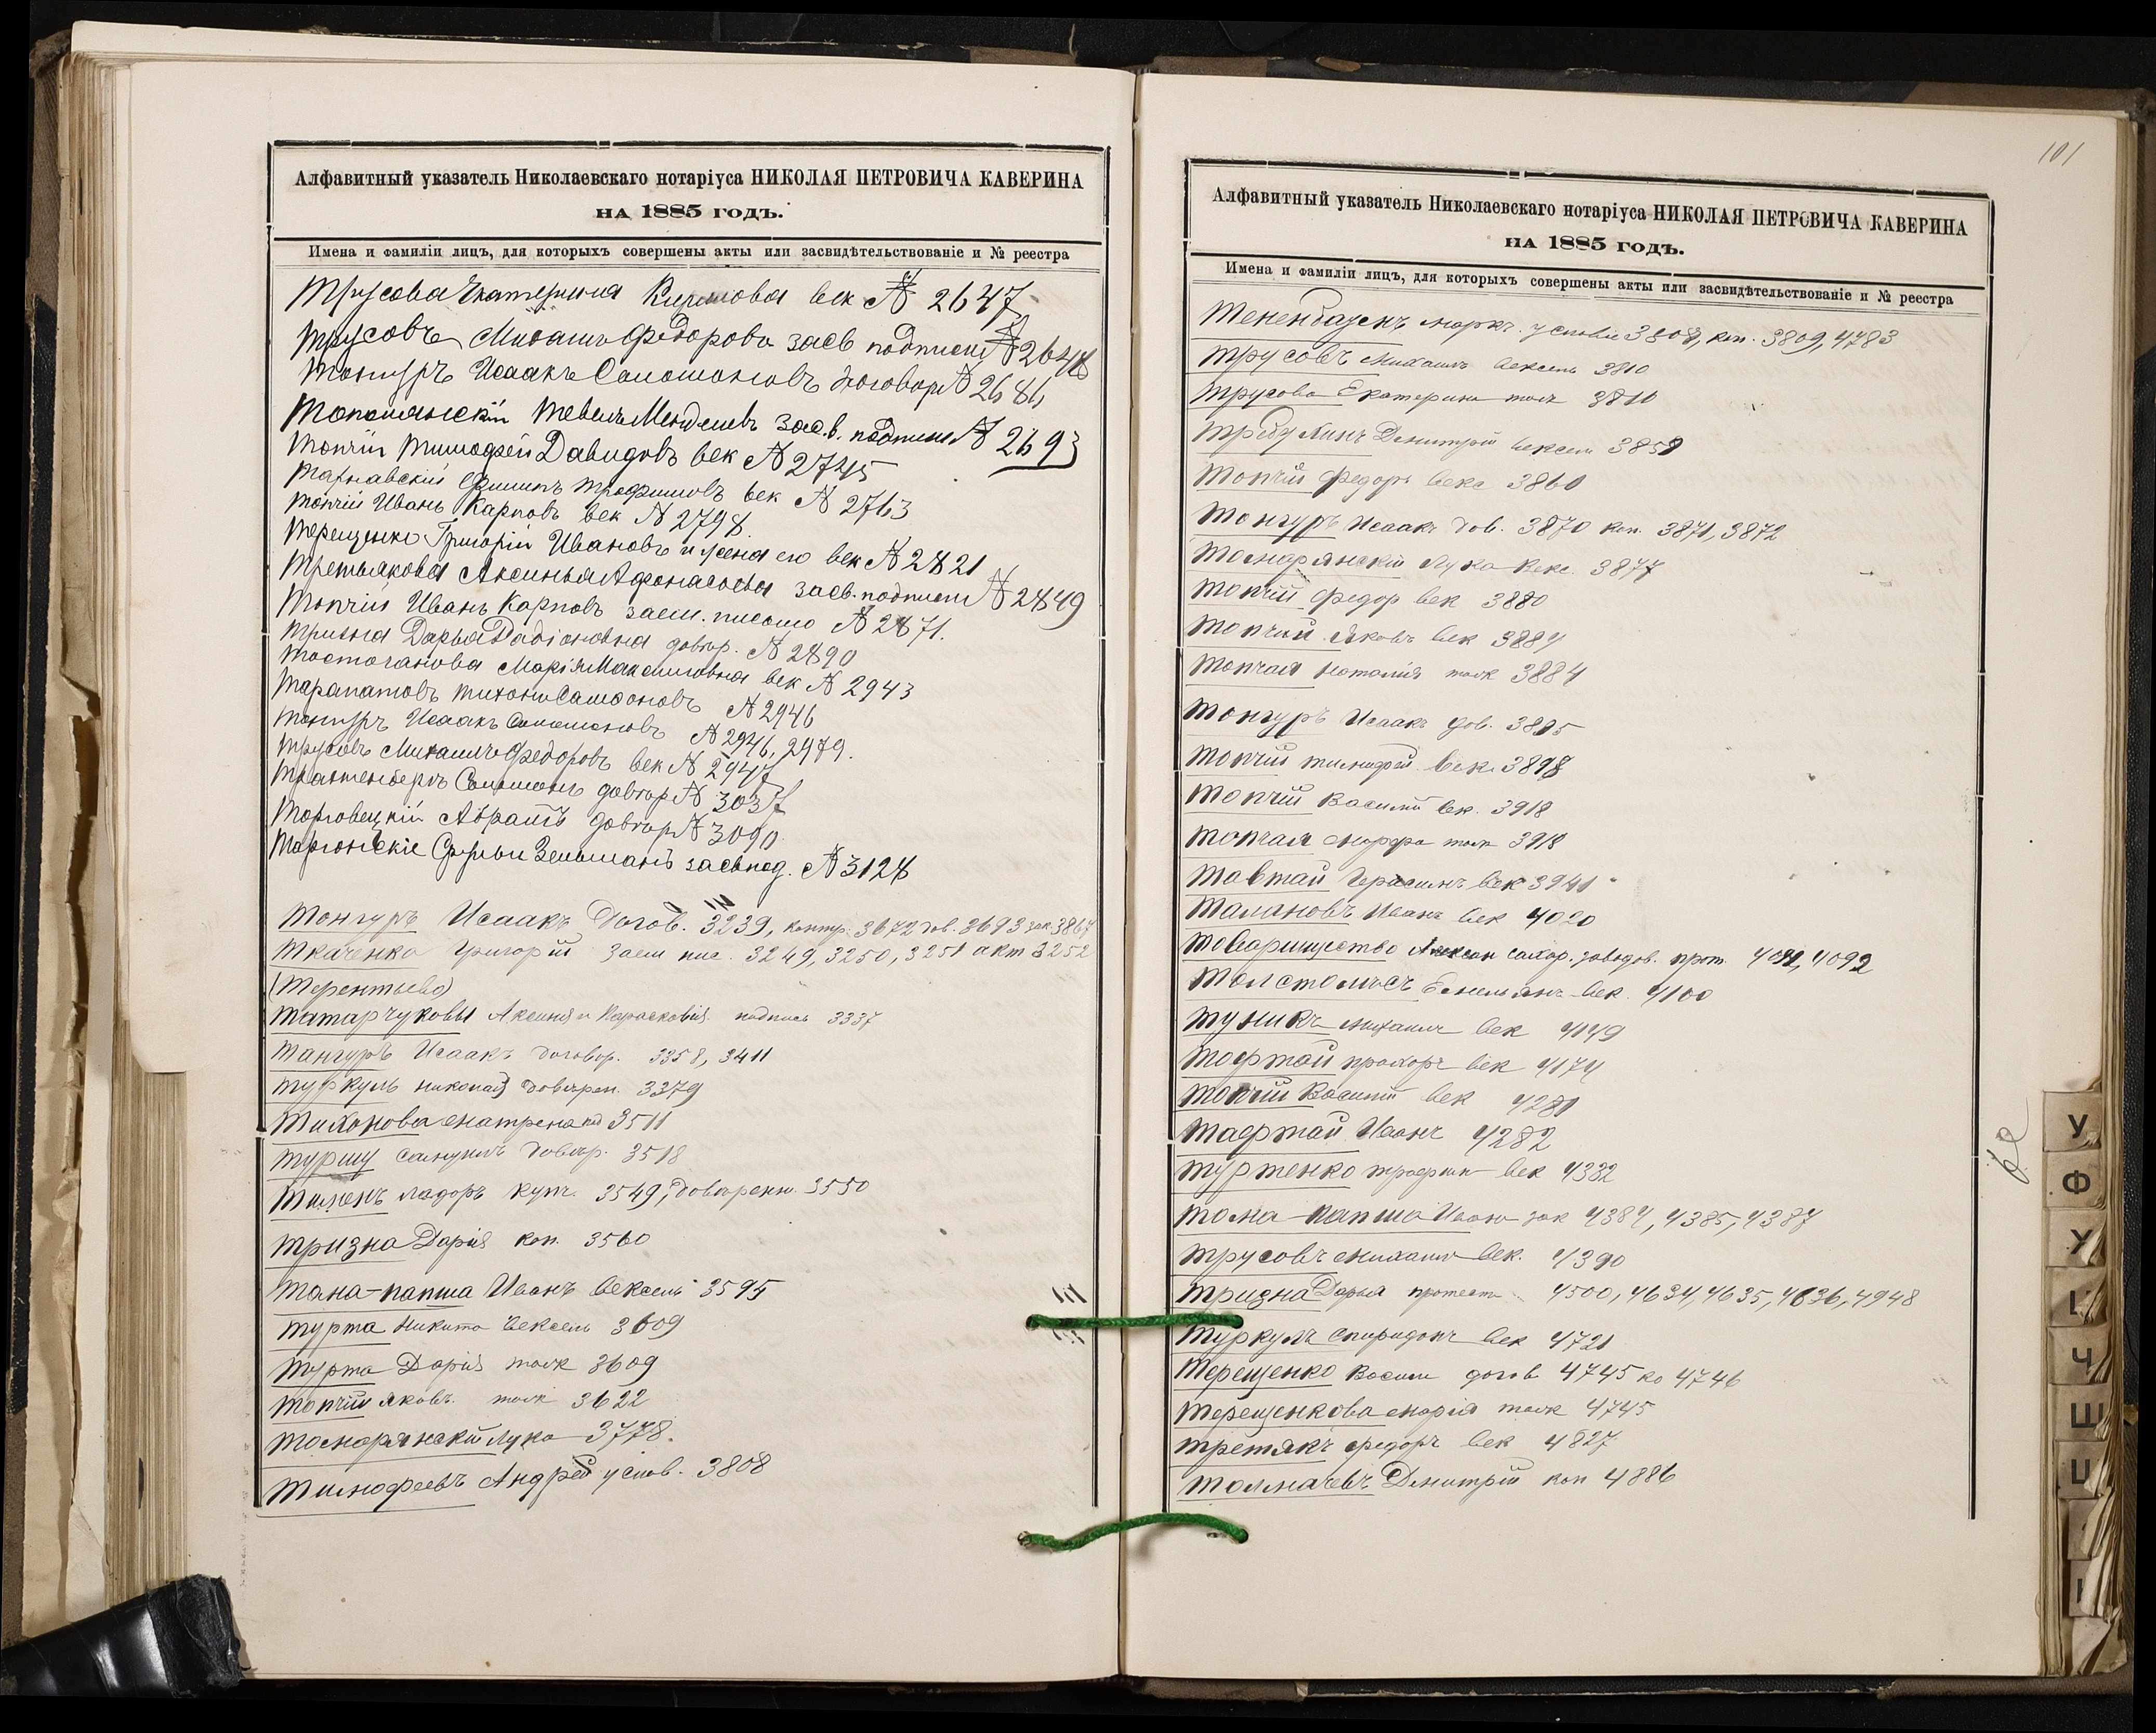 Алфавитный указатель Николаевскаго нотаріуса НИКОЛАЯ ПЕТРОВИЧА КАВЕРИНА
НА 1885 ГОДЪ.
Имена и фамиліи лицъ, для которыхъ совершены акты или засвидѣтельствованіе и № реестра
Трусова Екатерина век № 2647
Трусовъ Михаилъ Федоровъ засв подписи № 2648
Тонгуръ Исаакъ Соломоновъ договоръ № 2686
Тевель Менделевъ зас.в. подписи № 2693
Топчій Тимофей Давидовъ век № 2745
Тарнавскій Филипъ Трофимовъ век № 2763
Топчій Иванъ Карповъ век № 2798.
Терещенко Григорій Ивановъ и жена его век № 2821
Третьякова Аксинья Афонасьева засв. подписи № 2849
Топчій Иванъ Карповъ заем. письмо № 2871.
Тризна Дарья Радіоновна довѣр. № 2890
Марія Максимовна век № 2943
Тарапатовъ Тихонъ Самсоновъ № 2946
Тонгуръ Исаакъ Соломоновъ № 2946, 2979.
Трусовъ Михаилъ Федоровъ век № 2947
Трахтенбергъ Соломонъ довѣр № 3037
Торговецкій Абрамъ довѣр № 3090
Зельманъ засв под. № 3128
Тонгуръ Исаакъ Догов. 3239, контр. 3672 дов. 3693 зак. 3867
Ткаченко Григорій Заем пис. 3249, 3250, 3251 акт 3252
(Терентьево)
Татарчуковы Аксинія и Парасковія подпись 3337
Тангуръ Исаакъ договор. 3358, 3411
Туркулъ Николай довѣрен. 3379
Тихонова Матрена под 3511
Туршу Самуилъ Довѣр. 3518
купч. 3549, довѣренн. 3550
Тризна Дарія коп. 3560
Тома-папша Иванъ вексель 3595
Турта Никита вексель 3609
Турта Дарія тож 3609
Топчій Яковъ тож 3622
Томарянскій Лука 3778.
Тимофеевъ Андрей услов. 3808
101
Алфавитный указатель Николаевскаго нотаріуса НИКОЛАЯ ПЕТРОВИЧА КАВЕРИНА
НА 1885 ГОДЪ.
Имена и фамиліи лицъ, для которыхъ совершены акты или засвидѣтельствованіе и № реестра
Тененбаумъ Маркъ условіе 3808, коп. 3809, 4783
Трусовъ Михаилъ вексель 3810
Трусова Екатерина тож 3810
Димитрій вексель 3859
Топчій Федоръ векс 3860
Тонгуръ Исаакъ дов. 3870 коп. 3871, 3872
Томарянскій Лука векс. 3877
Топчій Федор век 3880
Топчій Яковъ век 3884
Топчая Наталія тож 3884
Тонгуръ Исаакъ дов. 3895
Топчій Тимофей век 3898
Топчій Василій век. 3918
Топчая Марфа тож 3918
Товтай Герасимъ век 3941
Талановъ Иванъ век 4020
Товарищество сахар. заводов. прот. 4091, 4092
Емельянъ век. 4100
Туникъ Михаилъ век 4149
Тофтай Прохоръ век 4174
Топчій Василій век 4281
Тафтай Иванъ 4282
Туртенко Трофим век 4332
Тома-папша Иванъ зак 4384, 4385, 4387
Трусовъ Михаилъ век. 4390
Тризна Дарья протест 4500, 4634, 4635, 4636, 4948
Туркулъ Спиридонъ век 4721
Терещенко Васили догов 4745 ко 4746
Терещенкова Марія тож 4745
Третякъ Федоръ век 4827
Толмачевъ Димитрій коп 4886
У
Ф
Ч
Ш